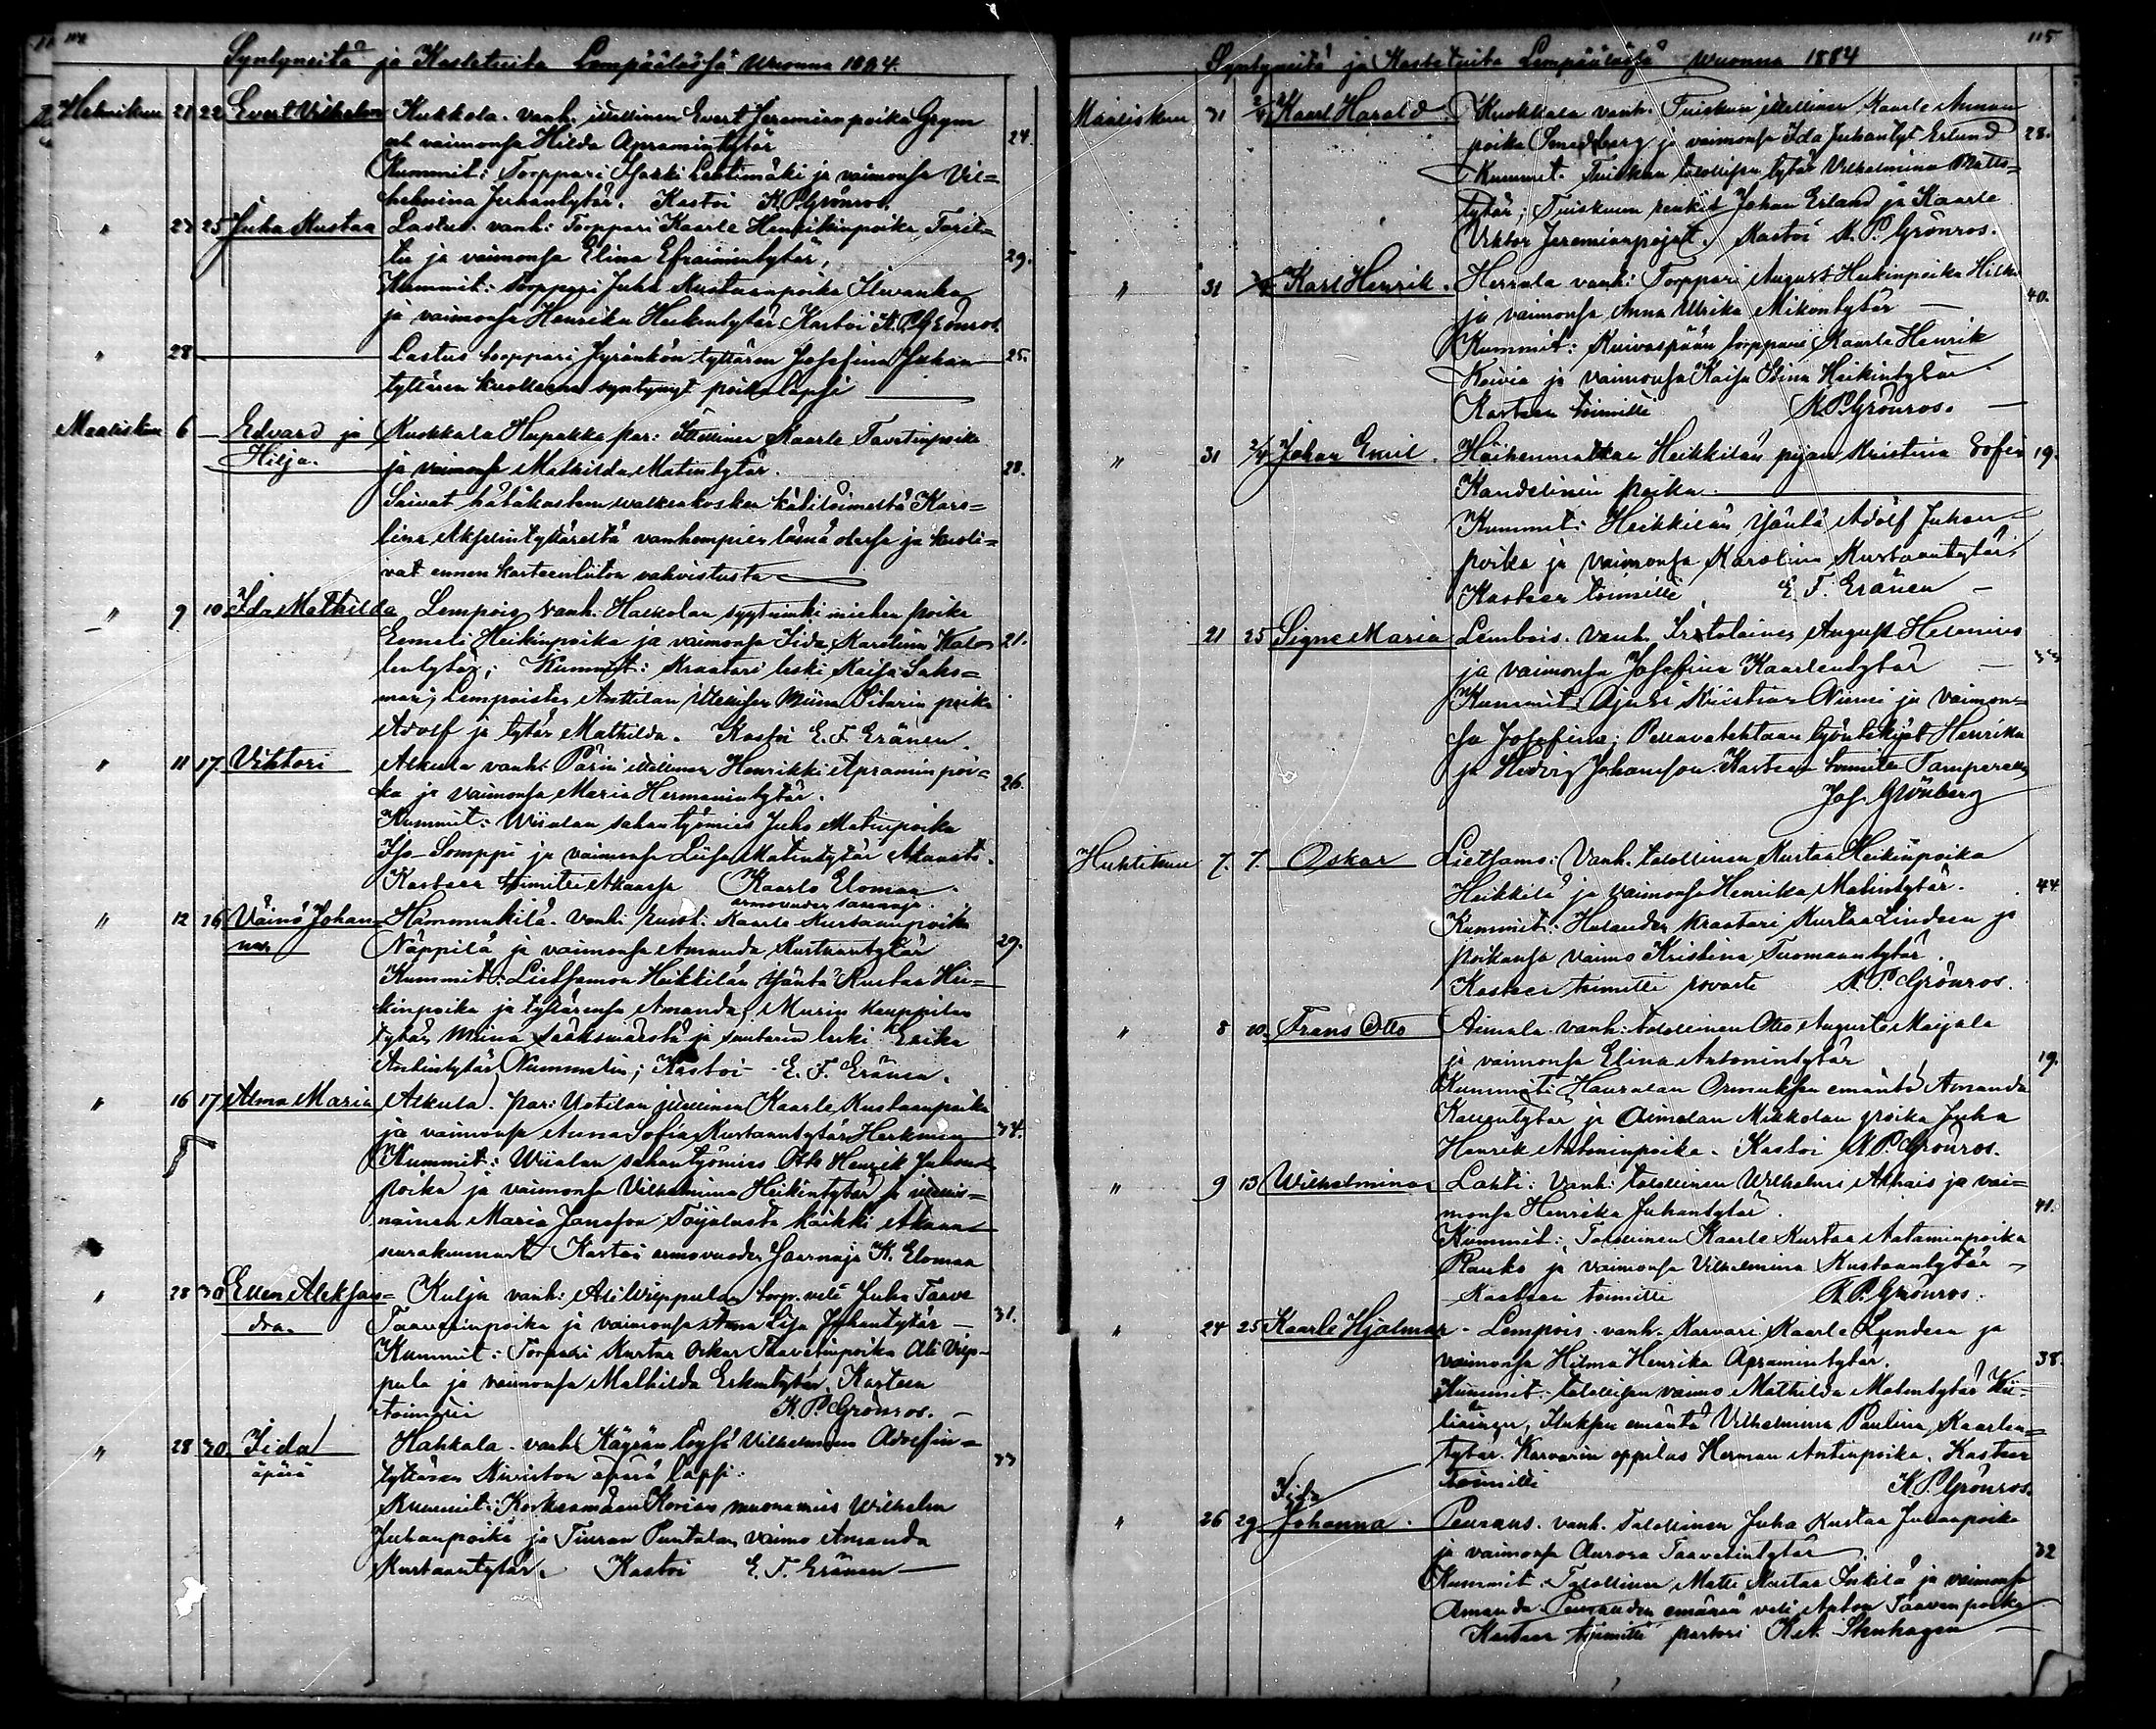 114
Syntyneitä ja Kastetuita Lempäälässä Wuonna 1884.
Helmikuu 21 22 Evert Vilhelm Kukkola. vanh. itsellinen Evert Jeremianpoika Grym
vaimonsa Hilda Apramintytär 24.
Kummit: Torppari Isakki Lehtimäki ja vaimonsa Vil=
helmina Juhantytär. Kastoi K.P. Grönros.
" 22 25 Juha Kustaa Lastus. vanh: Torppari Kaarle Henrikinpoika
ja vaimonsa Elina Efraimintytär, 29.
Kummit: Torppari Juha Kustaanpoika
ja vaimonsa Henrika Heikintytär Kastoi K.P. Grönros.
" 28 Lastus torppari tyttären Josefina Juhan 25.
tyttären kuolleena syntynyt poikalapsi
Maaliskuu 6 Edvard ja Kuokkala Hupakka par: Itsellinen Kaarle Tavetinpoika
Hilja. ja vaimonsa Mathilda Matintytär. 28.
Saivat hätäkasteen kätilöimeltä Karo=
lina tyttäreltä vanhempien läsnä olessa ja kuoli=
vat ennen kasteenliiton vahvistusta
" 9 10 Ida Mathilda Lempois vanh. Hakkolan miehen poika
Eemeli Heikinpoika ja vaimonsa Iida Karolina Kalo 21.
lentytär; Kummit: Kraatari leski Kaisa Saks=
man; Lempoisten Anttilan itsellisen Miina poika
Adolf ja tytär Mathilda. Kastoi E. F. Eränen.
" 11 17. Viktori Alkula vanh: Pärin itsellinen Henrikki Apraminpoi=
ka ja vaimonsa Maria Hermanintytär. 26.
Kummit: Wiialan sahantyömies Juho Matinpoika
Iso-Somppi ja vaimonsa Liisa Matintytär Akaasta.
Kasteen toimitti Akaassa Kaarlo Elomaa
armovuoden saarnaja.
" 12 16 Väinö Johan= Hämmikilä. vanh: rust: Kaarle Kustaanpoika
nes Näppilä ja vaimonsa Amanda Kustaantytär 29.
Kummit: Lietsamon Heikkilän isäntä Kustaa Hei=
kinpoika ja tyttärensä Amanda, Murin Kauppilan
tytär Miina Sääksmäestä ja suutarin leski Erika
Antintytär Nummelin; Kastoi E. F. Eränen.
" 16 17 Alma Maria Alkula. par: Uotilan itsellinen Kaarle Kustaanpoika
ja vaimonsa Anna Sofia Kustaantytär 34.
Kummit: Wiialan sahantyömies Otto Henrik Juhan
poika ja vaimonsa Vilhelmina Heikintytär ja itsellis=
nainen Maria Jansson Toijalasta kaikki Akaan
seurakunnasta Kastoi armovuoden saarnaja K. Elomaa
" 28 30 Ellen Aleksan= Kulju vanh: Ali Wäppulan torp. veli Juha Taave
dra. Taavetinpoika ja vaimonsa Anna Lisa Juhantytär 31.
Kummit: Torppari Kustaa Oskar Taavetinpoika Ali
pula ja vaimonsa Mathilda Erkintytär, Kasteen
toimitti K.P. Grönros.
" 28 30 Iida Hahkala. vanh: Käyrän löysä Vilhelmina Adolfin=
äpärä tyttären äpärä lapsi. 33
Kummit: muonamies Wilhelm
Juhanpoika ja vaimo Amanda
Kustaantytär. Kastoi E. F. Eränen
115
Syntyneitä ja Kastetuita Lempäälässä wuonna 1884
Maaliskuu 31 2/4 Kaarl Harald Kuokkala vanh. Tuiskun itsellinen Kaarle Annan
poika Smedberg ja vaimonsa Ida Juhantyt Erlund 28.
Kummit. Tuiskun talollisen tytär Vilhelmina Matts=
tytär; Tuiskun renkit Johan Erland ja Kaarle
Viktor Jeremianpojat. Kastoi K.P. Grönros.
" 31 Karl Henrik. Herrala vanh: Torppari August Heikinpoika
ja vaimonsa Anna Ulrika Mikontytär 40.
Kummit: Kuivaspään torppari Kaarle Henrik
Koivia ja vaimonsa Kaisa Stina Heikintytär
Kasteen toimitti K.P. Grönros.
" 31 2/4 Johan Emil. Häihenmatkan Heikkilän piian Kristina Sofia 19.
Kandelinin poika.
Kummit: Heikkilän isäntä Adolf Juhan=
poika ja vaimonsa Karolina Kustaantytär.
Kasteen toimitti E. F. Eränen
21 25 Signe Maria Lembois. vanh. Irtolainen August Helenius
ja vaimonsa Josefina Kaarlentytär 33
Kummit: Ajuri Kristian Niemi ja vaimon=
sa Josefina; Pellavatehtaan työntekijät Henrika
ja Hedvig Johansson. Kasteen toimitti Tampereella
Jos. Grönberg
Huhtikuu 7. 7. Oskar Lietsamo: Vanh. talollinen Kustaa Heikinpoika
Heikkilä ja vaimonsa Henrika Matintytär. 44.
Kummit: Hulauden kraatari Kustaa Lindeen ja
poikansa vaimo Kristina Tuomaantytär.
Kasteen toimitti rovasti K.P. Grönros.
" 8 10. Frans Otto Aimala. vanh: talollinen Otto Auguste Maijala
ja vaimonsa Elina Antonintytär 19.
Kummit: Hauralan Ormuksen emäntä Amanda
Kallentytär ja Aimalan Mikkolan poika Juha
Henrik Antoninpoika. Kastoi K.P. Grönros.
" 9 13 Wilhelmina Lahti: Vanh: talollinen Wilhelmi Ahnais ja vai=
monsa Henrika Juhantytär. 41.
Kummit: Talollinen Kaarle Kustaa Aataminpoika
Rauko ja vaimonsa Vilhelmina Kustaantytär
Kasteen toimitti K.P. Grönros.
" 24 25 Kaarle Hjalmar Lempois. vanh. Karvari Kaarle Lundeen ja
vaimonsa Hilma Henrika Apramintytär. 38.
Kummit: talollisen vaimo Mathilda Matintytär
emäntä Vilhelmina Paulina Kaarlen=
tytär. Karvarin oppilas Herman Antinpoika. Kasteen
toimitti K.P. Grönros.
Iida
" 26 29 Johanna. Peuraus. vanh. Talollinen Juha Kustaa Juhanpoika
ja vaimonsa Aurora Taavetintytär 32
Kummit: Talollinen Matti Kustaa Inkilä ja vaimonsa
Amanda. emännän veli Anton Taavetinpoika
Kasteen toimitti pastori Stenhagen